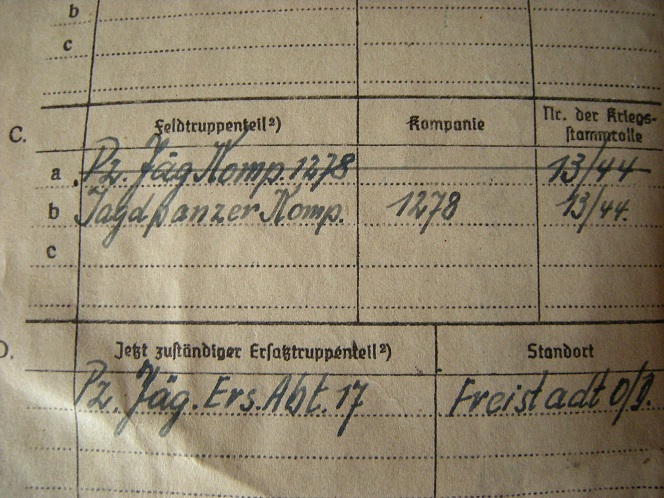 b
c
C. Feldtruppenteil²) Kompanie Nr. der Kriegs-
stammrolle
a Pz. Jäg Komp. 1278 13/44
b Jagdpanzer Komp. 1278 13/44.
c
D. Jetzt zuständiger Ersatztruppenteil²) Standort
Pz. Jäg. Ers. Abt. 17 Freistadt O/D.